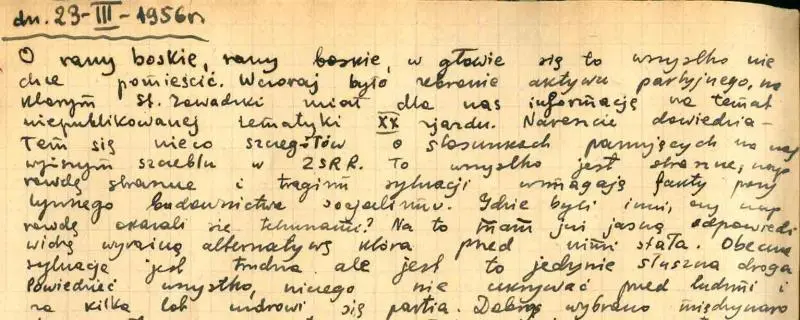 dn. 23-III-1956r.
O rany boskie, rany boskie, w głowie się to wszystko nie
chce pomieścić. Wczoraj było zebranie aktywu partyjnego, na
którym St. Zawadzki miał dla nas informację na temat
niepublikowanej tematyki XX zjazdu. Nareszcie dowiedzia-
łem się nieco szczegółów o stosunkach panujących na naj
wyższym szczeblu w ZSRR. To wszystko jest straszne, nap
rawdę straszne i tragizm sytuacji wzmagają fakty pozy
tywnego budownictwa socjalizmu. Gdzie byli inni, czy nap
rawdę okazali się tchórzami? Na to mam już jasną odpowiedź
widzę wyraźną alternatywę która przed nimi stała. Obecna
sytuacja jest trudna ale jest to jedynie słuszna droga
Powiedzieć wszystko, niczego nie ukrywać przed ludźmi i
za kilka lat uzdrowi się partia. Dobrze wybrano międzynaro